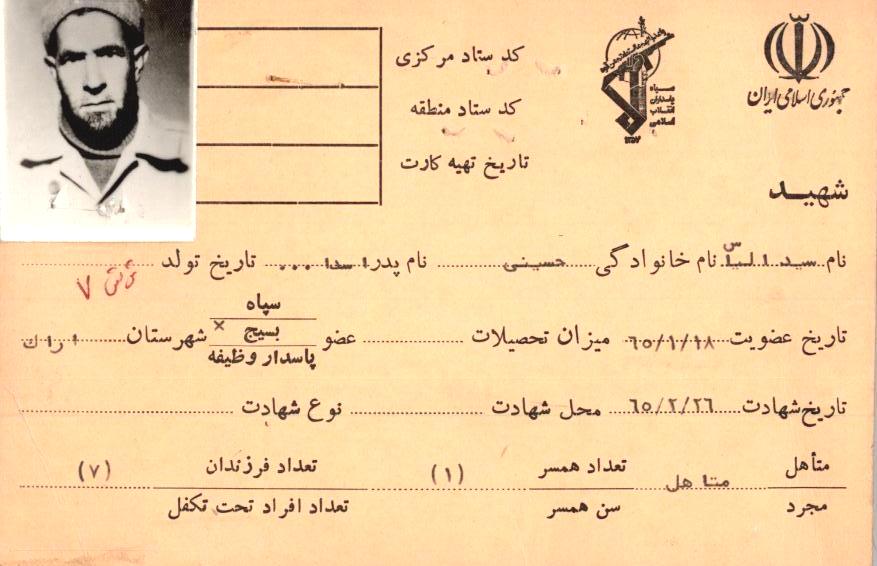 جمهوری اسلامی ایران
سپاه
پاسداران
انقلاب
اسلامی
۱۳۵۷
کد ستاد مرکزی
کد ستاد منطقه
تاریخ تهیه کارت
شهید
نام سید الیاس نام خانوادگی حسینی نام پدر اسدا... تاریخ تولد
تاریخ عضویت ٦٥/١/١٨ میزان تحصیلات عضو سپاه
بسیج ×
پاسدار وظیفه
شهرستان اراک
تاریخ شهادت ٦٥/٢/٢٦ محل شهادت نوع شهادت
متأهل متاهل تعداد همسر (١) تعداد فرزندان (٧)
مجرد سن همسر تعداد افراد تحت تکفل